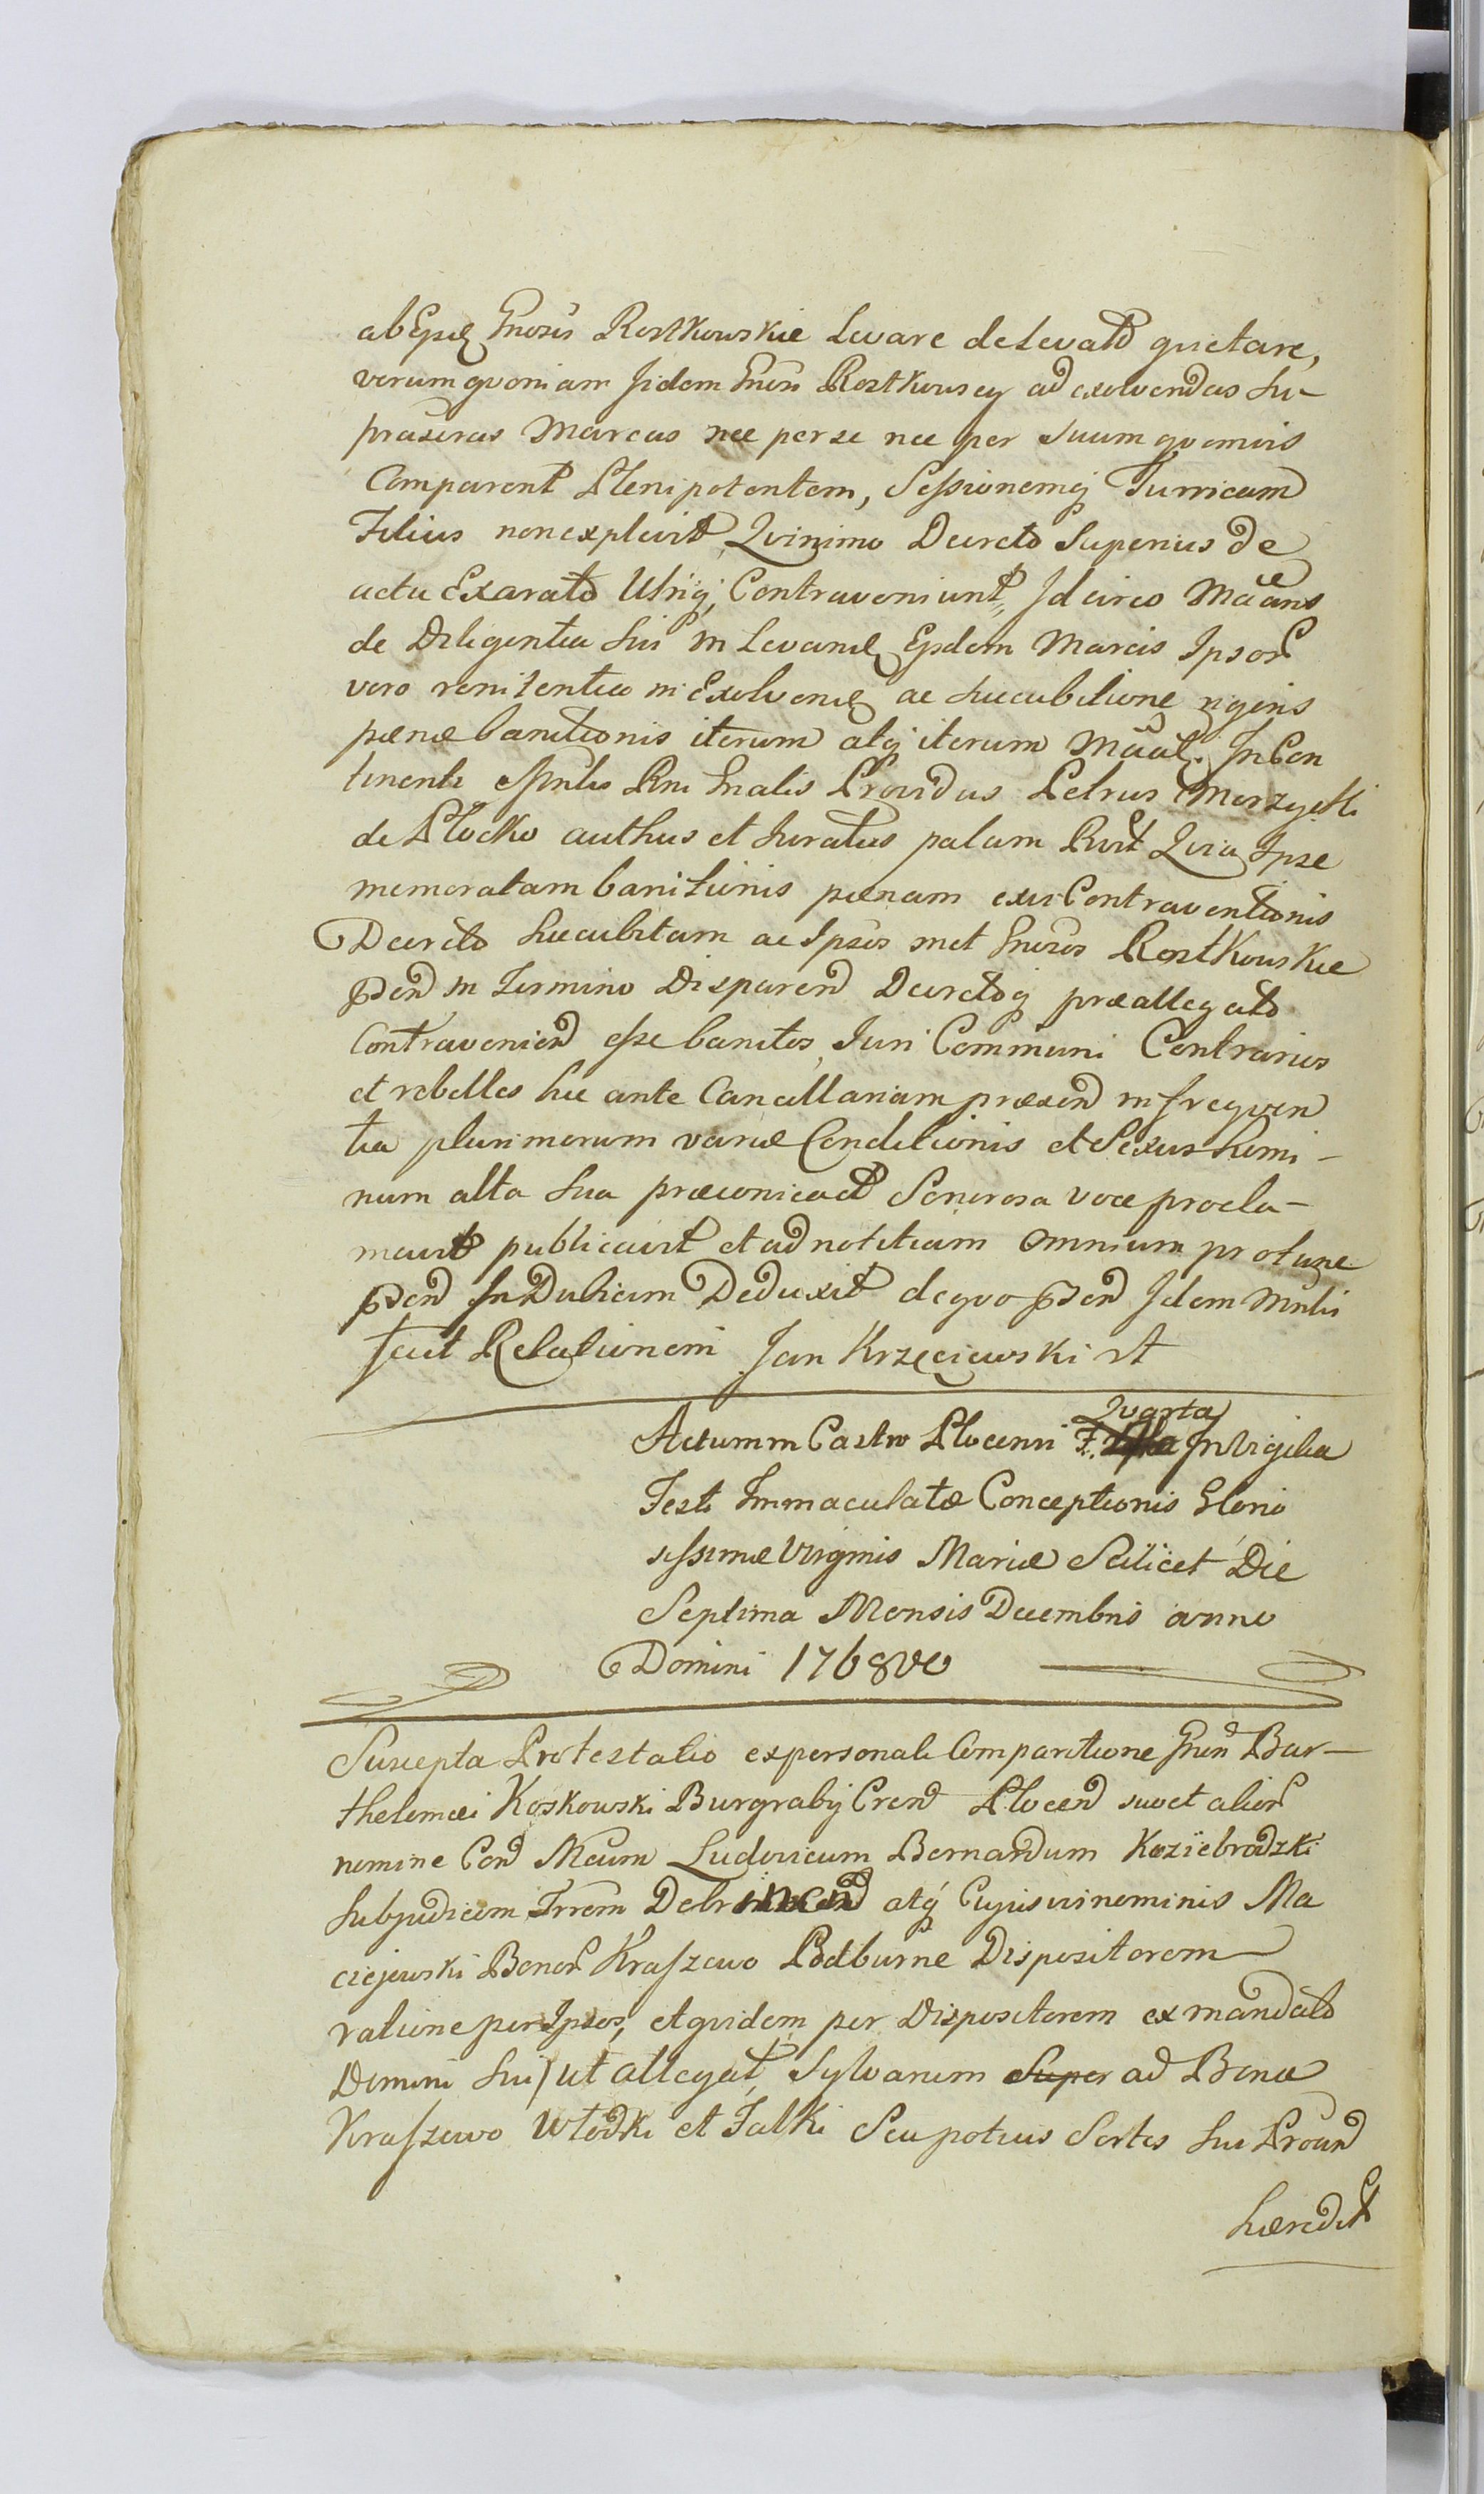 ab Ipsis Gnosis Rostkowskie Levare de Levatis quietare,
verum quoniam Iidem Gnosi Rostkowscy ad exolvendas Su-
praseras Marcas nec per se nec per Suum quemvis
Comparent Plenipotentem, Sessionemq Turricam
Filius non explevit, Quinimo Decreto Superius de
actu Exarato Utriq; Contraveniunt, Idcirco
de Diligentia Sui in Levand Eisdem Marcis Ipsor
vero renitentia in Exolvend ac Succubitione
pænæ banitionis iterum atq iterum In Con
tinenti Mnlis Rni Gnalis Providus Petrus
de Płocko authus et Iuratus palam Rvit Quia Ipse
memoratam banitionis pænam ex vi Contraventionis
Decreto Succubitam ac Ipsos met Gnosos Rostkowskie
pden in Termino Disparen Decretoq præallegato
Contravenien esse banitos, Iuri Communi Contrarios
et rebelles hic ante Cancellariam præsen in frequen
tia plurimorum variæ Conditionis et Sexus homi-
num alta Sua præconicaet Sonorosa voce procla-
mavit publicavit et ad notitiam omnium pro tunc
pden In Dubiam Deduxit de quo pden Idem Mnlis
fecit Relationem Jan Krzęciewski st
Actum in Castro Plocensi F. Quarta In Vigilia
Festi Immaculatæ Conceptionis Glorio
sissimæ Virginis Mariæ Scilicet Die
Septima Mensis Decembris anno
Domini 1768vo
Suscepta Protestatio ex personali Comparitione Gnsi Bar-
tholomæi Koskowski Burgrabij Crens Plocen suo et alior
nomine Con Mcum Ludovicum Bernardum Koziebrodzki
Subjudicem Trrem Dobrinen atq Cujusvi nominis Ma
ciejewski Bonor Kraszewo Podburne Dispositorem
ratione per Ipsos, et quidem per Dispositorem ex mandato
Domini Sui ut allegat, Sylvarum Super ad Bona
Kraszewo Włodki et Falki Seu potius Sortes Sui Proan
hæredit